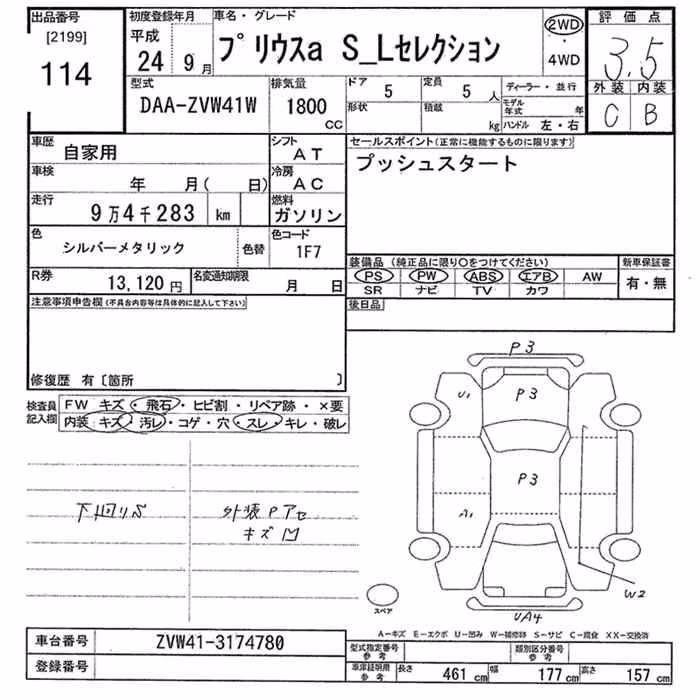 出品番号
[2199]
114
初度登録年月
平成
24 9月
車名・グレード
プリウスa S_Lセレクション
2WD
・
4WD
評価点
3.5
外装 内装
C B
型式
DAA-ZVW41W
排気量
1800
CC
ドア 5
定員 5 人
形状
積載 kg
ディーラー・並行
モデル年式 年
ハンドル 左・右
車歴 自家用
シフト AT
車検 年 月( 日)
冷房 AC
走行 9万4千283 km
燃料 ガソリン
色 シルバーメタリック 色替
色コード 1F7
R券 13,120円
名変通知期限 月 日
セールスポイント(正常に機能するものに限ります)
プッシュスタート
装備品(純正品に限り○をつけてください)
PS PW ABS エアB AW
SR ナビ TV カワ
新車保証書
有・無
後日品
注意事項申告欄(不具合内容等は具体的に記入して下さい)
修復歴 有〔箇所 〕
検査員記入欄
FW キズ・飛石・ヒビ割・リペア跡・×要
内装:キズ・汚レ・コゲ・穴・スレ・キレ・破レ
下回りS
外装Pアセ
キズ凹
P3
P3
U1
P3
A1
W2
UA4
スペア
A−キズ E−エクボ U−凹み W−補修跡 S−サビ C−腐食 XX−交換済
車台番号 ZVW41-3174780
登録番号
型式指定番号 参考
類別区分番号 参考
車庫証明用 参考
長さ 461 cm 幅 177 cm 高さ 157 cm